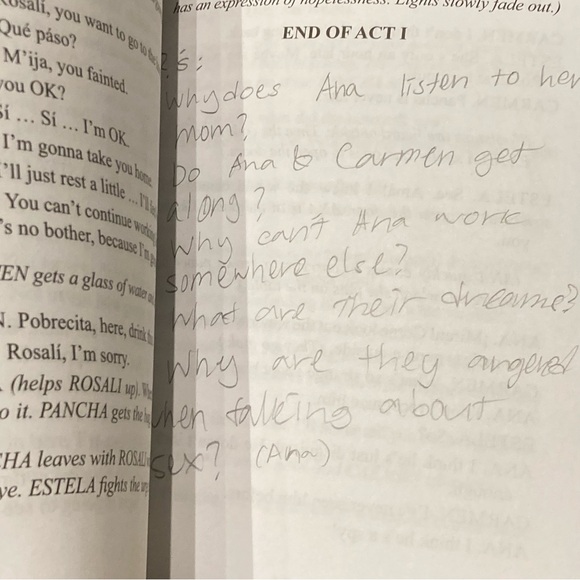 Rosalí, you want to go to the
Qué páso?
M'ija, you fainted.
you OK?
Sí … Sí … I'm OK.
I'm gonna take you home
I'll just rest a little …
You can't continue working
's no bother, because I'm
EN gets a glass of water
N. Pobrecita, here, drink
Rosalí, I'm sorry.
(helps ROSALI up).
o it. PANCHA gets the
CHA leaves with ROSALI
ye. ESTELA fights the
has an expression of hopelessness. Lights slowly fade out.)
END OF ACT I
?'s:
Why does Ana listen to her
mom?
Do Ana & Carmen get
along?
Why can't Ana work
somewhere else?
What are their dreams?
Why are they angered
when talking about
sex? (Ana)